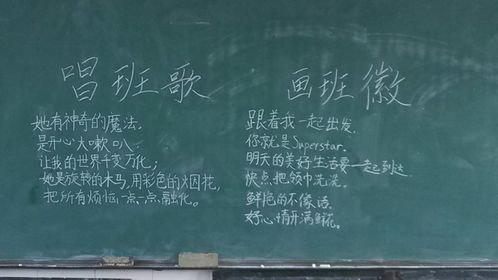 唱班歌
她有神奇的魔法,
是开心大嗽叭
让我的世界千变万化;
她是旋转的木马,用彩色的烟花,
把所有烦恼,一点,一点,融化。
画班徽
跟着我一起出发.
你就是Superstar.
明天的美好生活要一起到达.
快点,把领巾洗洗.
鲜艳的不像话.
好心情开满鲜花.